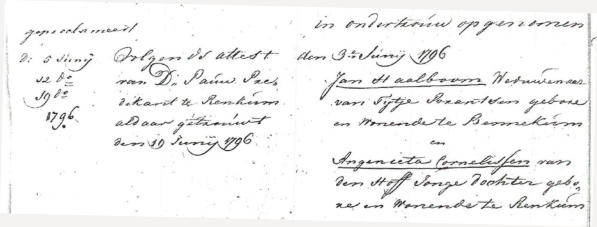 geproclameert
d: 5 Junij
12 do
19 do
1796.
Volgends attest
van Ds. Pauw Pre-
dikant te Renkum
aldaar getrouwt
den 19 Junij 1796
in ondertrouw opgenomen
den 3n Junij 1796
Jan Staalboom Weduwenaar
van Tijtje gebore
en Wonende te Bennekum
en
Angeneeta Cornelissen van
den Hoff Jonge dochter gebo-
re en Wonende te Renkum